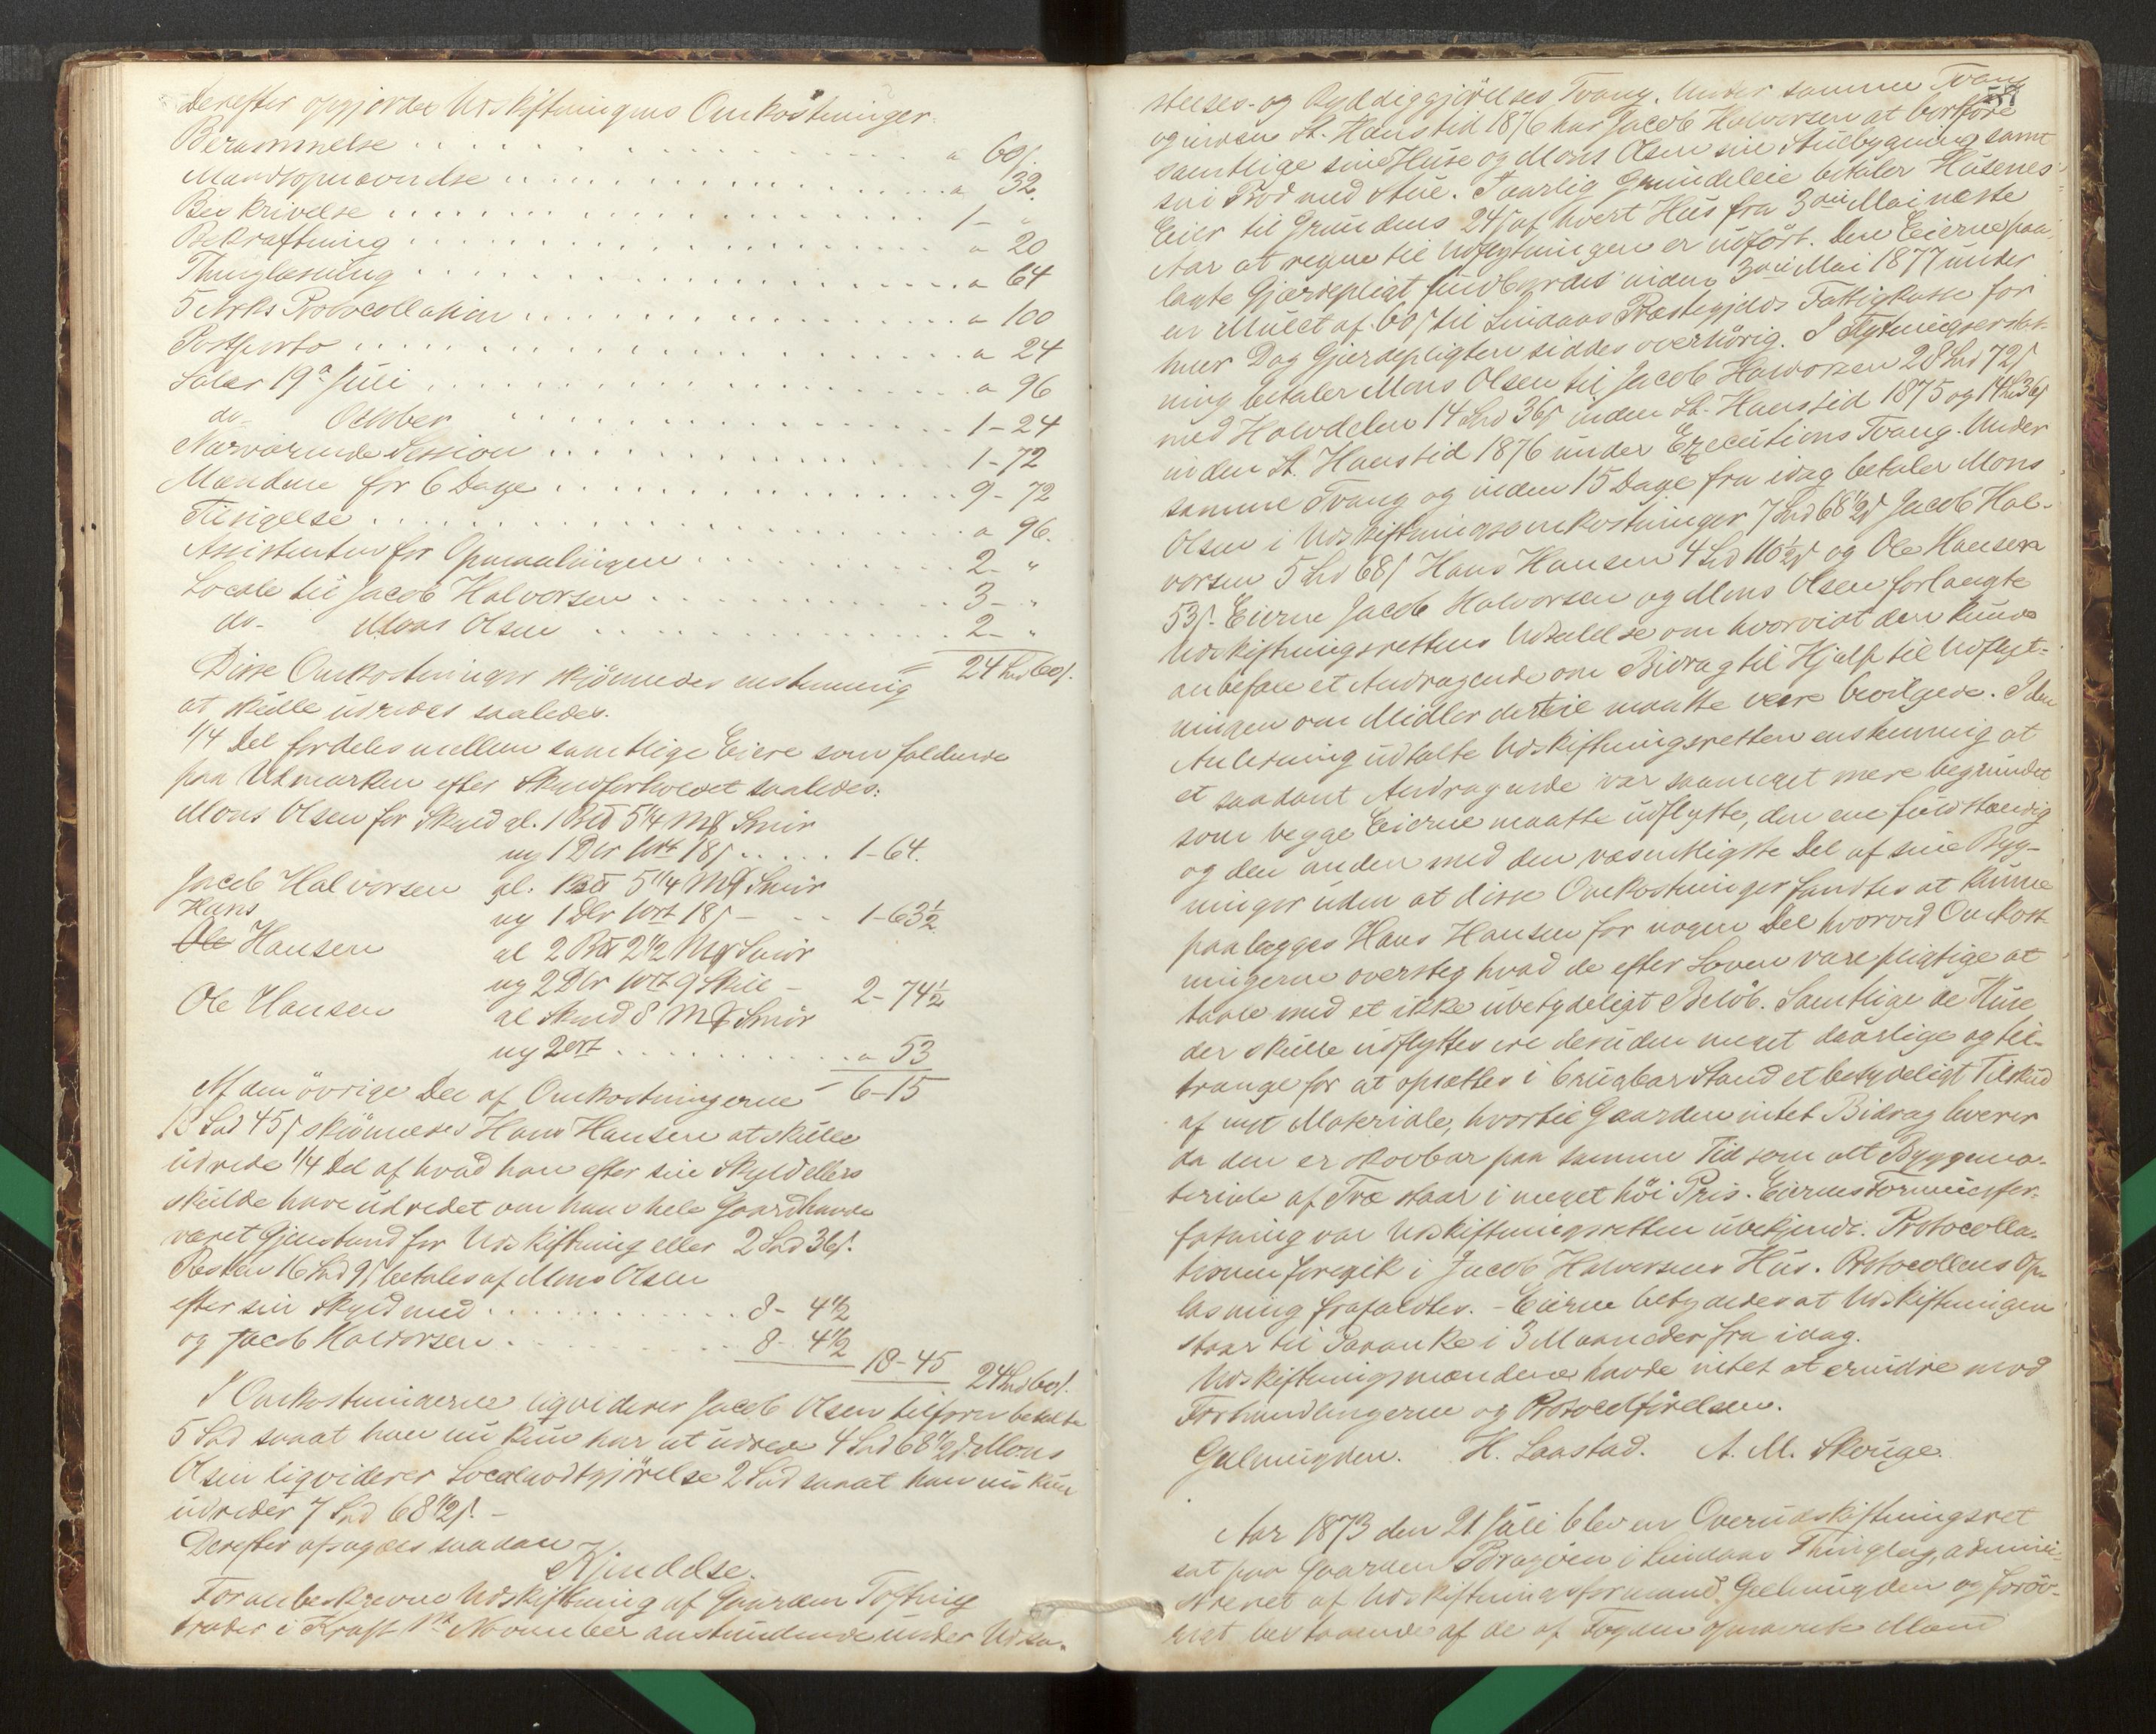 Derefter opgjordes Udskiftningens Omkostninger:
Berammelse . . . " 60 s.
Mandsopnævnelse . . . " 32.
Beskrivelse . . . 1 - "
Bekræftning . . . " 20
Thinglæsning . . . " 64
5 Arks Protocollation . . . " 100
Postporto . . . " 24
Salær 19de Juli . . . " 96
do- October . . . 1 - 24
Nærværende Session . . . 1 - 72
Mændene for 6 Dage . . . 9 - 72
Tilsigelse . . . " 96.
Assistenten for Opmaalingen . . . 2 - "
Locale til Jacob Halvorsen . . . 3 - "
do- Mons Olsen . . . 2 - "
= 24 Spd 60 s.
Disse Omkostninger skjønnedes enstemmig
at skulle udredes saaledes.
1/4 Del fordeles mellem samtlige Eiere som faldende
paa Udmarken efter Skyldforholdet saaledes:
Mons Olsen for Skyld gl. 1 Bpd 5 1/4 Mkr Smør
ny 1 Dlr 1 Ort 18 s . . . 1-64.
Jacob Halvorsen gl. 1 Bpd 5 1/4 Mkr Smør
ny 1 Dlr 1 Ort 18 s - . . . 1-63 1/2
Hans
Ole Hansen gl 2 Bpd 2 1/2 Mkr Smør
ny 2 Dlr 1 Ort 9 Skill - 2 - 74 1/2
Ole Hansen gl Skyld 8 Mkr Smør
ny 2 Ort . . . " 53
= 6-15
Af den øvrige Del af Omkostningerne
18 Spd 45 s skjønnedes Hans Hansen at skulle
udrede 1/4 Del af hvad han efter sin Skyld ellers
skulde have udredet om hans hele Gaard havde
været Gjenstand for Udskiftning eller 2 Spd 36 s.
Resten 16 Spd 9 s betales af Mons Olsen
efter sin Skyld med . . . 8 - 4 1/2
og Jacob Halvorsen . . . 8 - 4 1/2
18 - 45 24 Spd 60 s.
I Omkostningerne liqviderer Jacob Olsen tilforn betalte
5 Spd saaat han nu kun har at udrede 4 Spd 68 1/2 s. Mons
Olsen liqviderer Localgodtgjørelse 2 Spd saaat han nu kun
udreder 7 Spd 68 1/2 s. -
Derefter afsagdes saadan
Kjendelse.
Foranbeskrevne Udskiftning af Gaarden Tofting
træder i Kraft 1ste November anstundende under Udsæ-
telses- og Ryddiggjørelses Tvang. Under samme Tvang
og inden St. Hanstid 1876 har Jacob Halvorsen at bortføre
samtlige sine Huse og Mons Olsen sin Stuebygning samt
sin Bod med Stue. I aarlig Grundeleie betaler Husenes
Eier til Grundens 24 s af hvert Hus fra 3die Mai næste
Aar at regne til Udflytningen er udført. Den Eierne paa-
lagte Gjærdepligt fuldbyrdes inden 3die Mai 1877 under
en Mulct af 60 s til Lindaas Præstegjelds Fattigkasse for
hver Dag Gjærdepligten siddes overhørig. I Flytningserstat-
ning betaler Mons Olsen til Jacob Halvorsen 28 Spd 72 s
med Halvdelen 14 Spd 36 s inden St. Hanstid 1875 og 14 Spd 36 s
inden St. Hanstid 1876 under Executions Tvang. Under
samme Tvang og inden 15 Dage fra idag betaler Mons
Olsen i Udskiftningsomkostninger 7 Spd 68 1/2 s Jacob Hal-
vorsen 5 Spd 68 s Hans Hansen 4 Spd 110 1/2 s og Ole Hansen
53 s. Eierne Jacob Halvorsen og Mons Olsen forlangte
Udskiftningsrettens Udtalelse om hvorvidt den kunde
anbefale et Andragende om Bidrag til Hjælp til Udflyt-
ningen om Midler dertil maatte være bevilgede. I den
Anledning udtalte Udskiftningsretten enstemmig at
et saadant Andragende var saameget mere begrundet
som begge Eierne maatte udflytte, den ene fuldstændig
og den anden med den væsentligste Del af sine Byg-
ninger uden at disse Omkostninger fandtes at kunne
paalægges Hans Hansen for nogen Del hvorved Omkost-
ningerne oversteg hvad de efter Loven vare pligtige at
taale med et ikke ubetydeligt Beløb. Samtlige de Huse
der skulle udflyttes ere desuden meget daarlige og til-
trænge for at opsættes i brugbar Stand et betydeligt Tilskud
af nyt Materiale, hvortil Gaarden intet Bidrag leverer
da den er skovbar paa samme Tid som alt Byggema-
teriale af Træ staar i meget høi Pris. Eiernes Formuesfor-
fatning var Udskiftningsretten ubekjendt. Protocolla-
tionen foregik i Jacob Halvorsens Hus. Protocollens Op-
læsning frafaldtes. - Eierne betydedes at Udskiftningen
staar til Paaanke i 3 Maaneder fra idag.
Udskiftningsmændene havde intet at erindre mod
Forhandlingerne og Protocolførelsen.
Gjelmuyden. H. Laastad. A. M. Skouge.
Aar 1873 den 21 Juli blev en Overudskiftningsret
sat paa Gaarden Bragøen i Lindaas Thinglag, admini-
streret af Udskiftningsformand Gjelmuyden og forøv-
rigt bestaaende af de af Fogden opnævnte Mænd